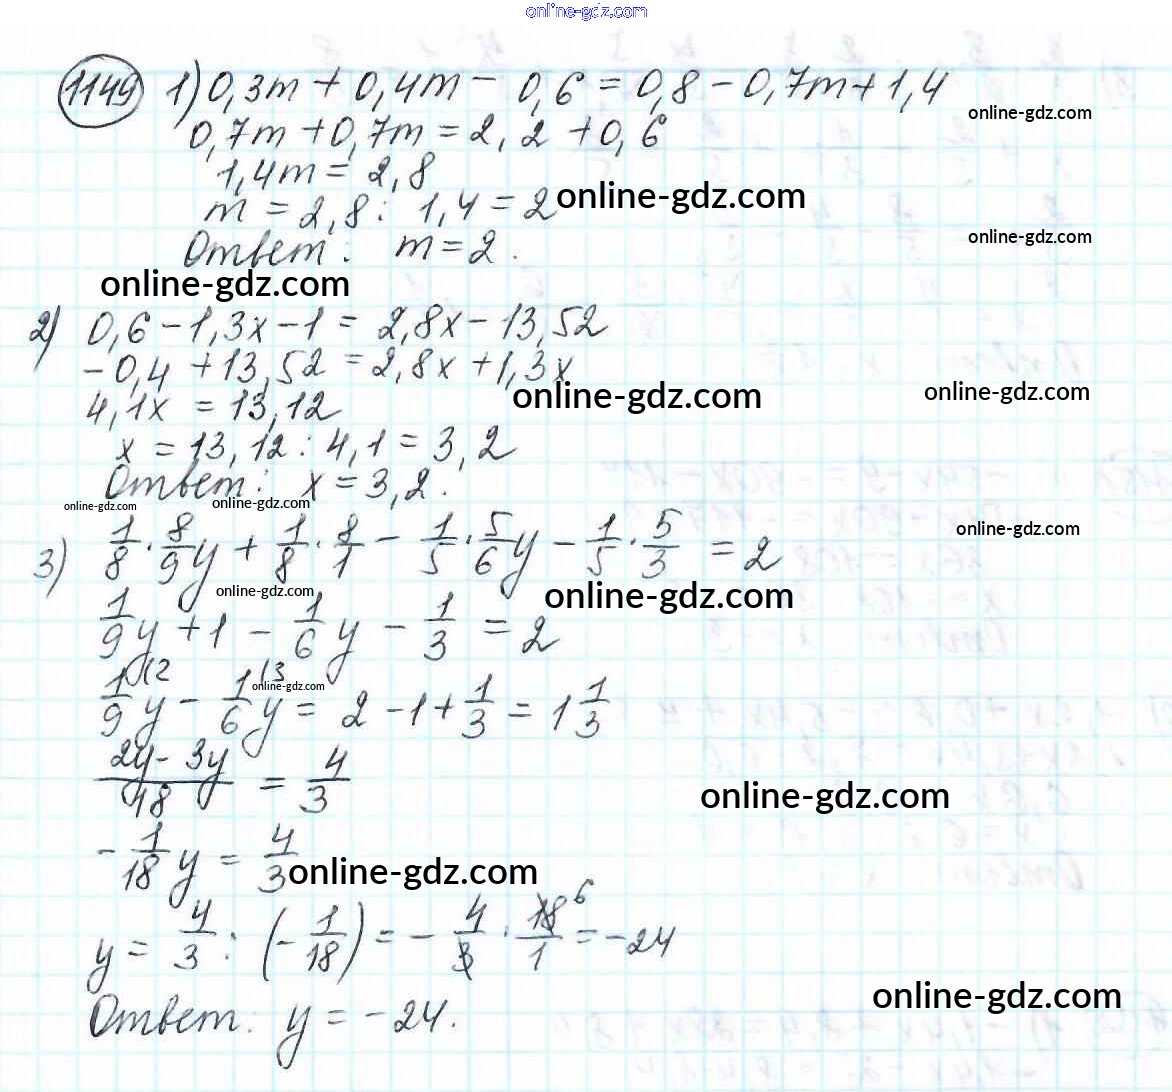 online-gdz.com
1149 1) 0,3m + 0,4m - 0,6 = 0,8 - 0,7m + 1,4
online-gdz.com
0,7m + 0,7m = 2,2 + 0,6
1,4m = 2,8
m = 2,8 : 1,4 = 2
online-gdz.com
Ответ: m = 2.
online-gdz.com
online-gdz.com
2) 0,6 - 1,3x - 1 = 2,8x - 13,52
-0,4 + 13,52 = 2,8x + 1,3x
4,1x = 13,12
online-gdz.com
online-gdz.com
x = 13,12 : 4,1 = 3,2
Ответ: x = 3,2.
online-gdz.com
online-gdz.com
online-gdz.com
3) 1/8 · 8/9 y + 1/8 · 8/1 - 1/5 · 5/6 y - 1/5 · 5/3 = 2
online-gdz.com
online-gdz.com
1/9 y + 1 - 1/6 y - 1/3 = 2
1\2 1\3
online-gdz.com
1/9 y - 1/6 y = 2 - 1 + 1/3 = 1 1/3
2y - 3y / 18 = 4/3
online-gdz.com
-1/18 y = 4/3
online-gdz.com
y = 4/3 : (-1/18) = -4/3 · 18/1 6 = -24
online-gdz.com
Ответ: y = -24.